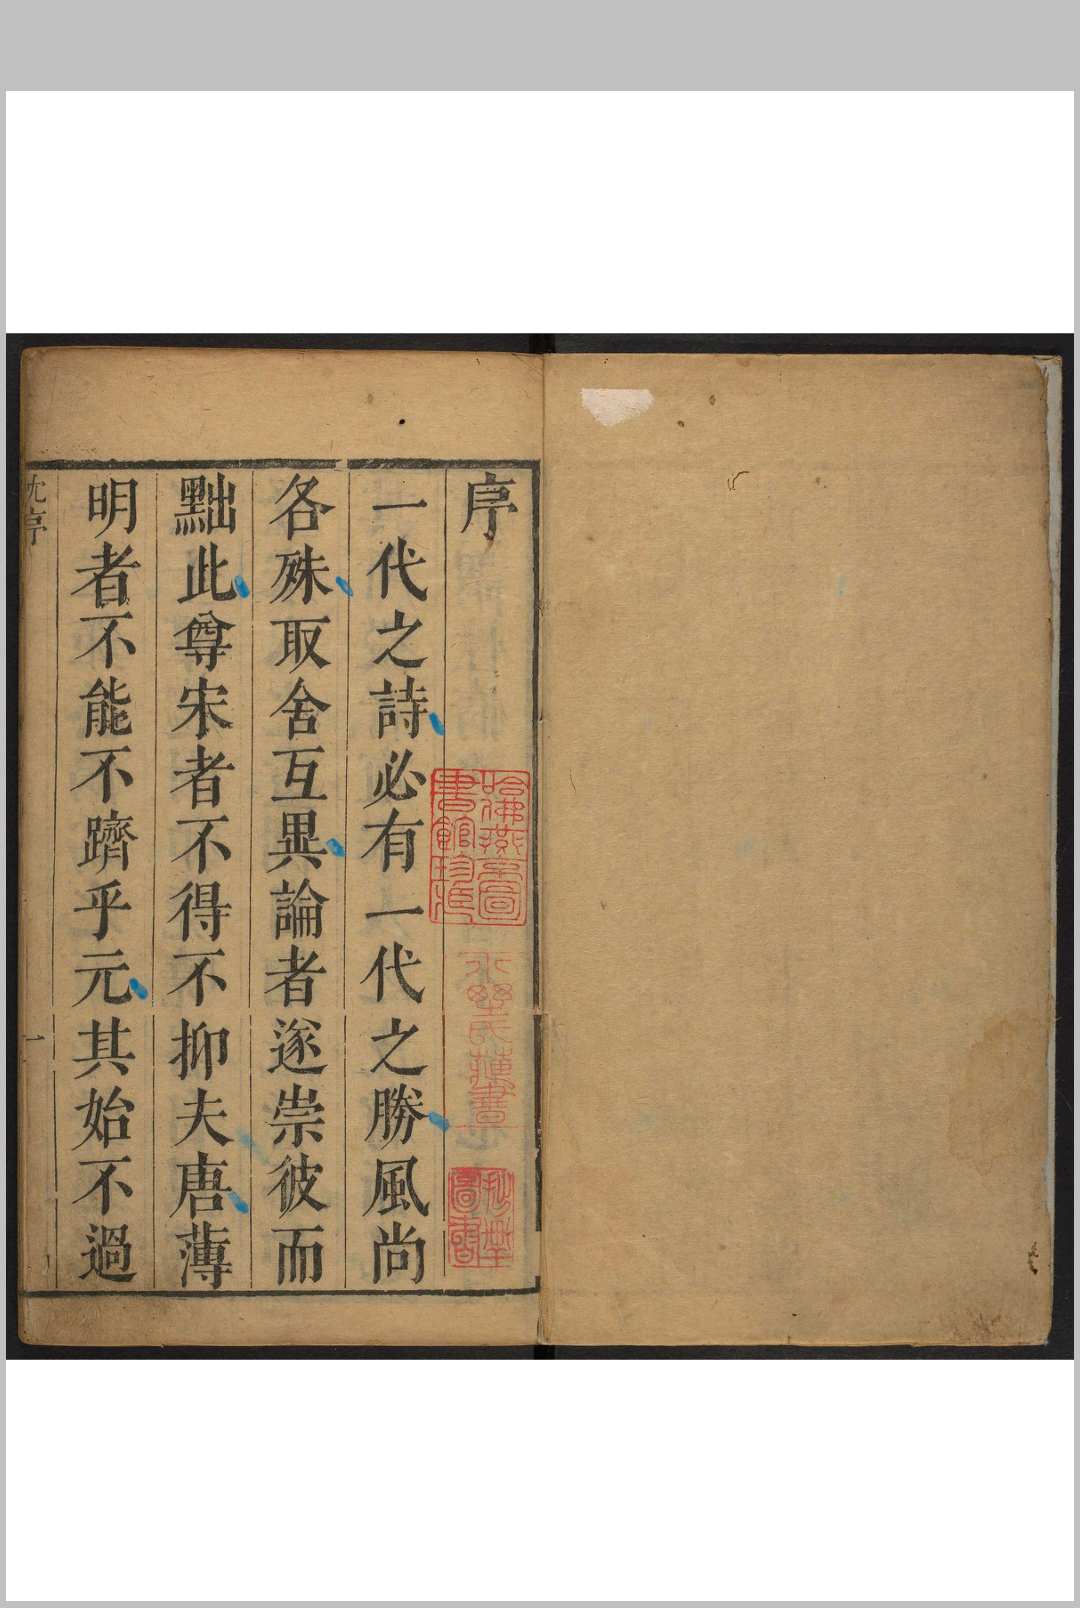 序
一代之詩必有一代之勝風尚
各殊取舍互異論者遂崇彼而
黜此尊宋者不得不抑夫唐薄
明者不能不躋乎元其始不過
沈序
一
哈佛燕京圖
書館珍藏
圖書